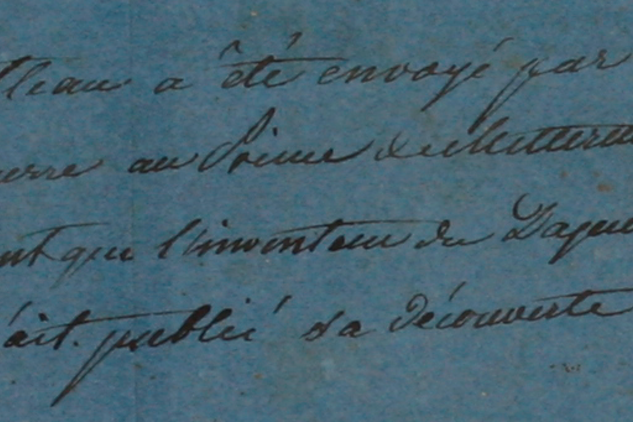 tleau a été envoyé par
uerre au Prince de Mettern
nt que l'inventeur du Dague
ait publié sa découverte